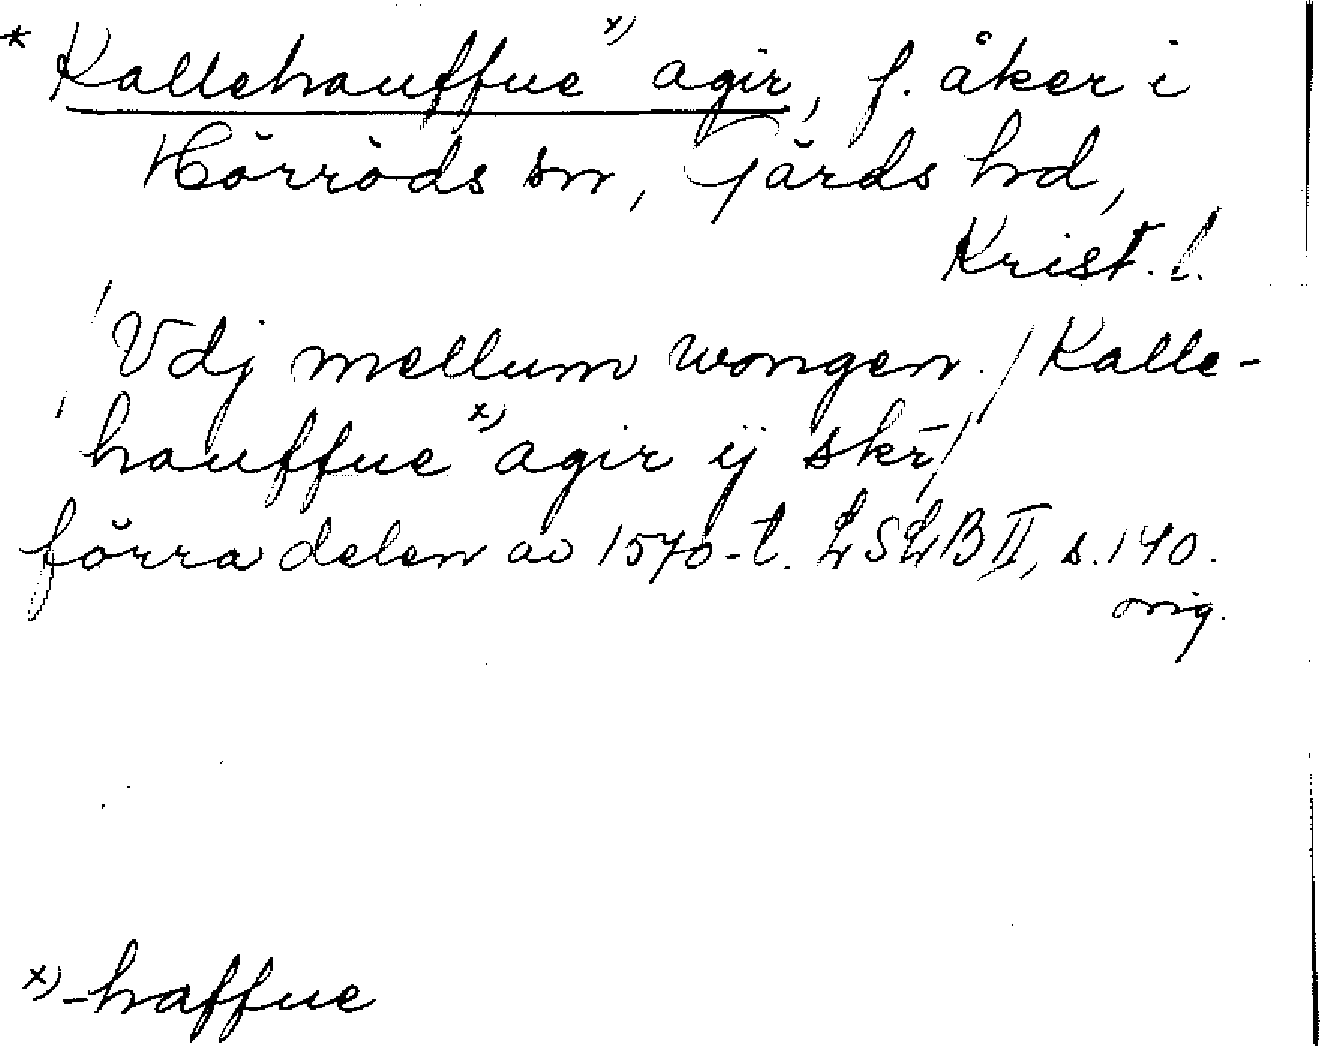 * Kallehauffue x) agir, f. åker i
Hörröds sn, Gärds hd,
Krist. l.
Vdj mellum wongen. / Kalle-
hauffue x) agir ij skr̄ /
förra delen av 1570-t. LSLB II, s. 140.
orig.
x) -haffue